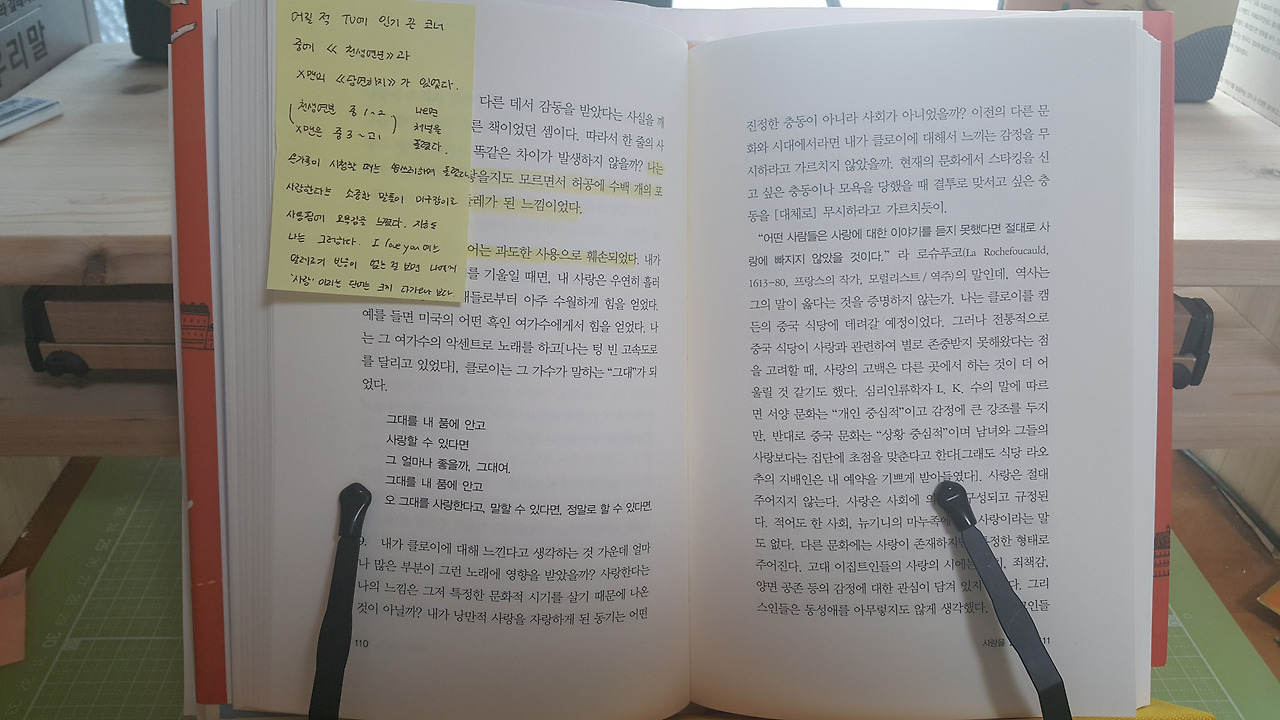 우리말
어릴 적 TV에 인기 끈 코너
중에 《 천생연분》과
X맨의 《당연하지》가 있었다.
천생연분 중 1~2
X맨은 중 3~고1
나이면
처넋을
사랑한다는 소중한 말들이
나는 그러하다. I love you
'사랑' 이라는 단어는 크게 다가오나 보다.
다른 데서 감동을 받았다는 사실을 깨
른 책이었던 셈이다. 따라서 한 줄의 사
똑같은 차이가 발생하지 않을까? 나는
않을지도 모르면서 허공에 수백 개의 포
들레가 된 느낌이었다.
어는 과도한 사용으로 훼손되었다. 내가
를 기울일 때면, 내 사랑은 우연히 흘러
래들로부터 아주 수월하게 힘을 얻었다.
예를 들면 미국의 어떤 흑인 여가수에게서 힘을 얻었다. 나
는 그 여가수의 악센트로 노래를 하고[나는 텅 빈 고속도로
를 달리고 있었다], 클로이는 그 가수가 말하는 “그대”가 되
었다.
그대를 내 품에 안고
사랑할 수 있다면
그 얼마나 좋을까, 그대여.
그대를 내 품에 안고
오 그대를 사랑한다고, 말할 수 있다면, 정말로 할 수 있다면.
9. 내가 클로이에 대해 느낀다고 생각하는 것 가운데 얼마
나 많은 부분이 그런 노래에 영향을 받았을까? 사랑한다는
나의 느낌은 그저 특정한 문화적 시기를 살기 때문에 나온
것이 아닐까? 내가 낭만적 사랑을 자랑하게 된 동기는 어떤
110
진정한 충동이 아니라 사회가 아니었을까? 이전의 다른 문
화와 시대에서라면 내가 클로이에 대해서 느끼는 감정을 무
시하라고 가르치지 않았을까. 현재의 문화에서 스타킹을 신
고 싶은 충동이나 모욕을 당했을 때 결투로 맞서고 싶은 충
동을 [대체로] 무시하라고 가르치듯이.
“어떤 사람들은 사랑에 대한 이야기를 듣지 못했다면 절대로 사
랑에 빠지지 않았을 것이다.” 라 로슈푸코(La Rochefoucauld,
1613-80, 프랑스의 작가, 모럴리스트/역주)의 말인데, 역사는
그의 말이 옳다는 것을 증명하지 않는가. 나는 클로이를 캠
든의 중국 식당에 데려갈 예정이었다. 그러나 전통적으로
중국 식당이 사랑과 관련하여 별로 존중받지 못해왔다는 점
을 고려할 때, 사랑의 고백은 다른 곳에서 하는 것이 더 어
울릴 것 같기도 했다. 심리인류학자 L. K. 수의 말에 따르
면 서양 문화는 “개인 중심적”이고 감정에 큰 강조를 두지
만, 반대로 중국 문화는 “상황 중심적”이며 남녀와 그들의
사랑보다는 집단에 초점을 맞춘다고 한다[그래도 식당 라오
추의 지배인은 내 예약을 기쁘게 받아들였다]. 사랑은 절대
주어지지 않는다. 사랑은 사회에 의 구성되고 규정된
다. 적어도 한 사회, 뉴기니의 마누족에 사랑이라는 말
도 없다. 다른 문화에는 사랑이 존재하지 정한 형태로
주어진다. 고대 이집트인들의 사랑의 시에는 죄책감,
양면 공존 등의 감정에 대한 관심이 담겨 있지 다. 그리
스인들은 동성애를 아무렇지도 않게 생각했다. 인들
사랑을 11